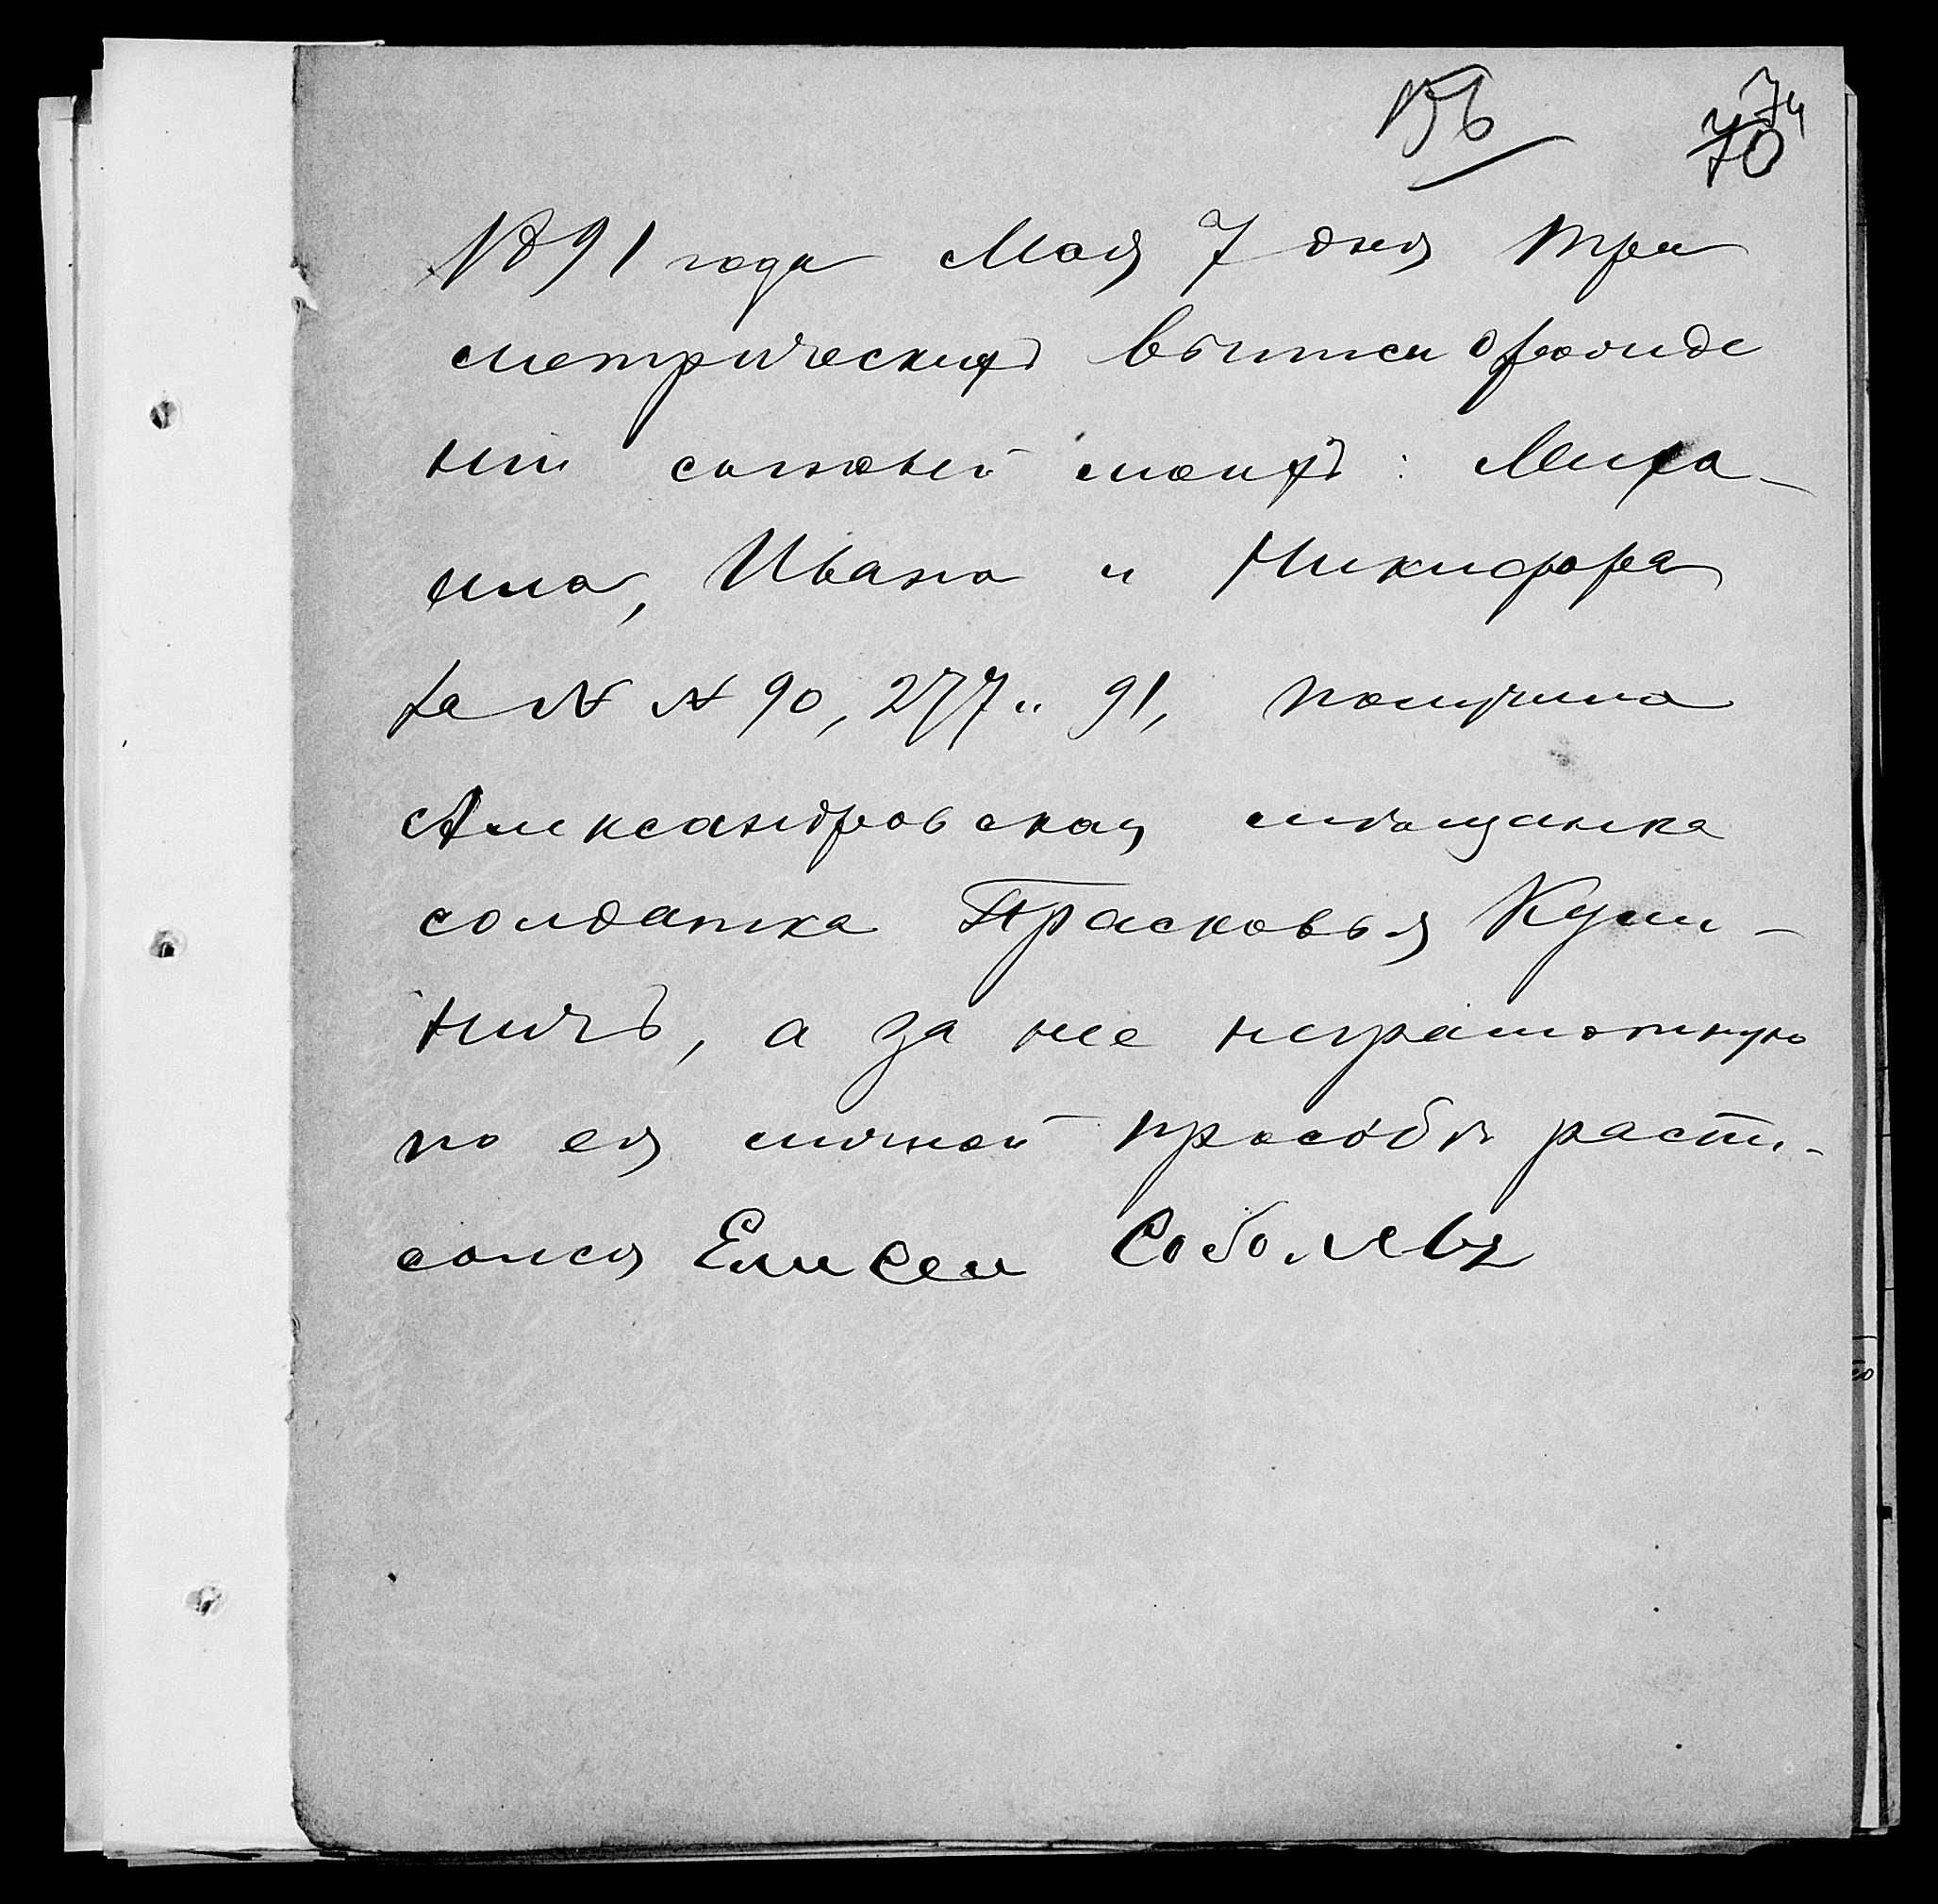 156
74
70
1891 года Мая 7 дня три
метрическихъ выписи о рожде
нии сыновей моихъ: Миха-
ила, Ивана и Никифора
за №№ 90, 277 и 91, получила
Александровская мѣщанка
солдатка Прасковья
а за нее неграмотную
по ея личной просьбѣ распи-
сался Елисей Соболевъ